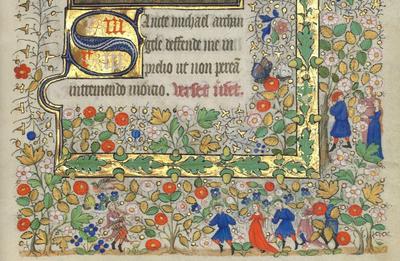 Sancte michael archan
gele deffende me in
prelio ut non peream
in tremendo iudicio. Verset ꝛ ꝟset.